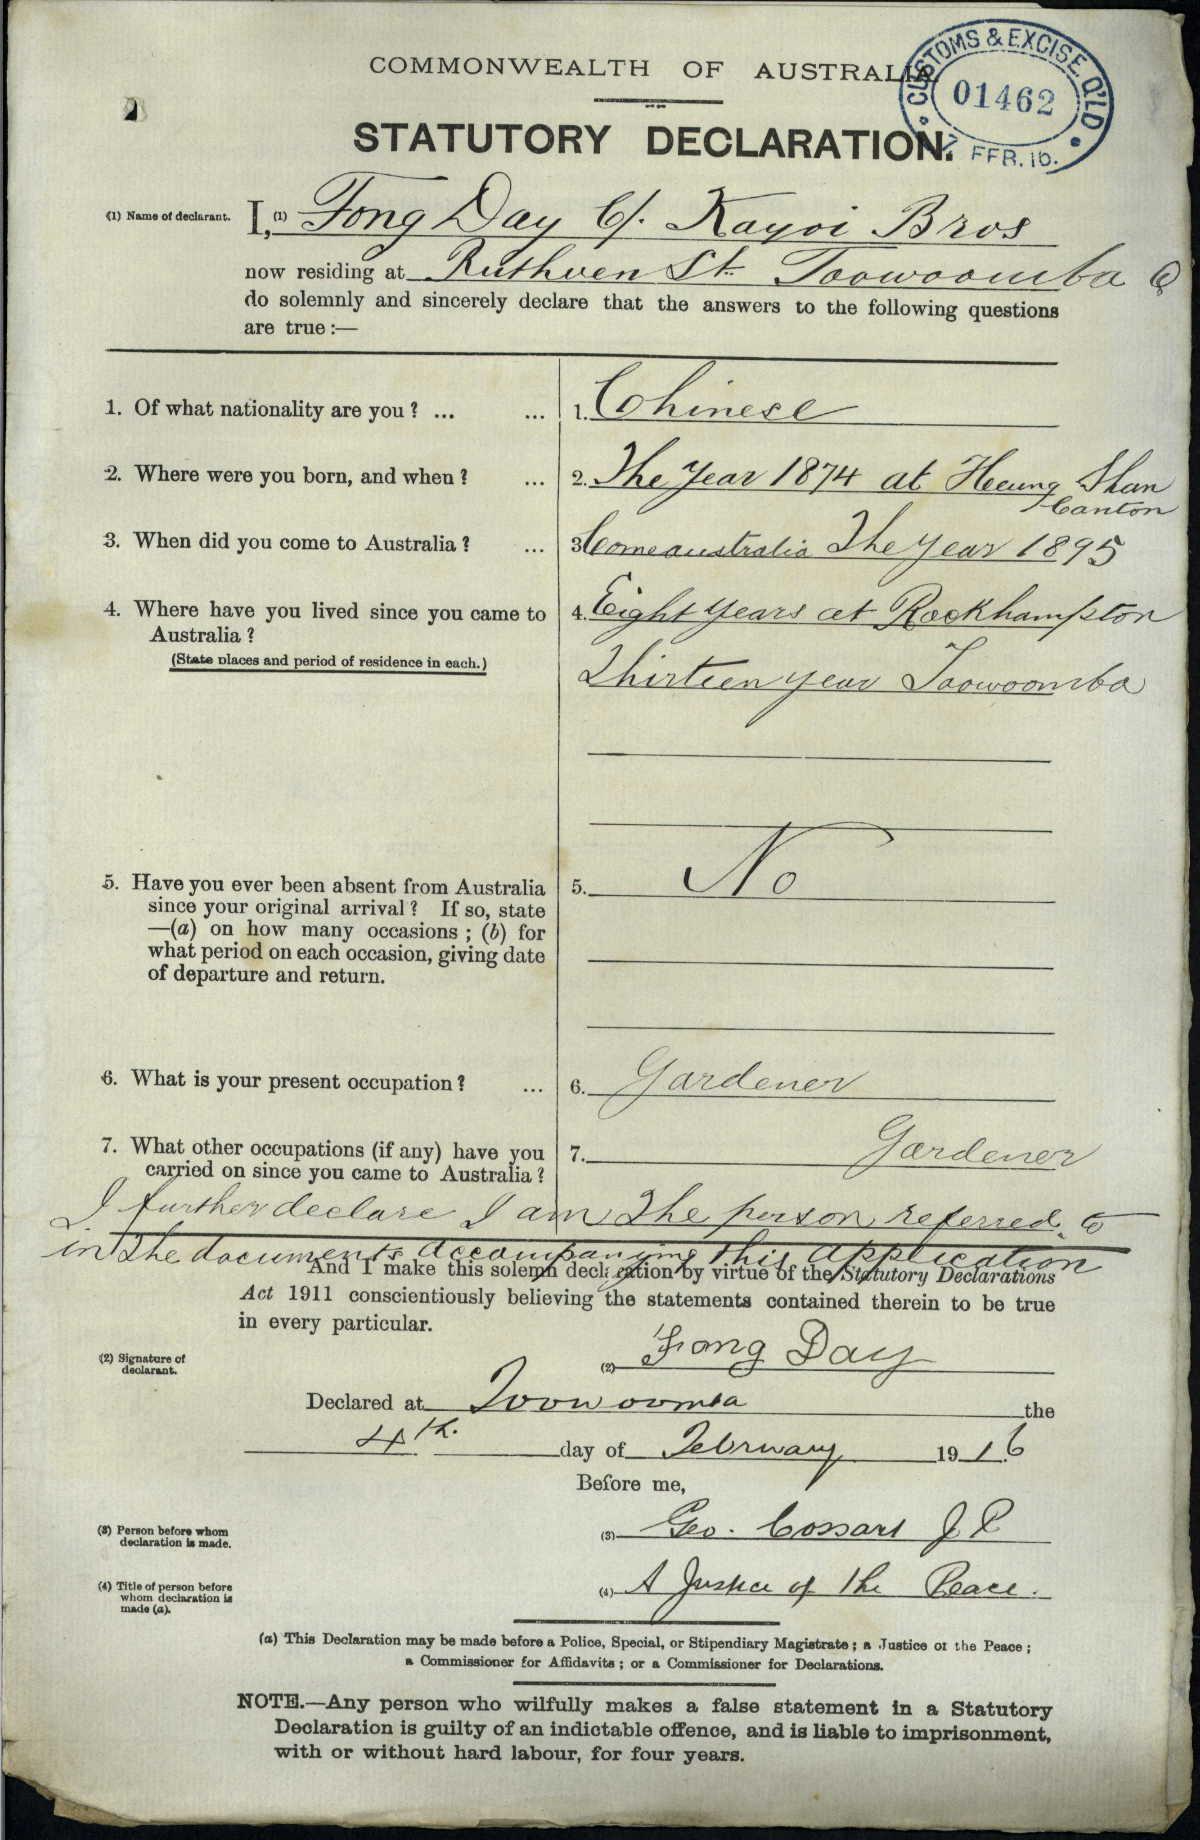 COMMONWEALTH OF AUSTRALIA.
CUSTOMS & EXCISE. Q'LD
01462
7 FEB. 16.
STATUTORY DECLARATION.
(1) Name of declarant. I, (1) Fong Day C/. Kayoi Bros
now residing at Ruthven St. Toowoomba Q
do solemnly and sincerely declare that the answers to the following questions
are true:—
1. Of what nationality are you? ... ... 1. Chinese
2. Where were you born, and when? ... 2. The Year 1874 at Heung Shan
Canton
3. When did you come to Australia? ... 3. Come australia The Year 1895
4. Where have you lived since you came to 4. Eight Years at Rockhampton
Australia?
(State places and period of residence in each.) Thirteen year Toowoomba
5. Have you ever been absent from Australia 5. No
since your original arrival? If so, state
—(a) on how many occasions; (b) for
what period on each occasion, giving date
of departure and return.
6. What is your present occupation? ... 6. Gardener
7. What other occupations (if any) have you 7. Gardener
carried on since you came to Australia?
I further declare I am the person referred to
in the documents accompanying this application
And I make this solemn declaration by virtue of the Statutory Declarations
Act 1911 conscientiously believing the statements contained therein to be true
in every particular.
(2) Signature of declarant. (2) Fong Day
Declared at Toowoomba the
4th. day of February 1916
Before me,
(3) Person before whom declaration is made. (3) Geo. Cossart J P
(4) Title of person before whom declaration is made (a). (4) A Justice of the Peace.
(a) This Declaration may be made before a Police, Special, or Stipendiary Magistrate; a Justice of the Peace;
a Commissioner for Affidavits; or a Commissioner for Declarations.
NOTE.—Any person who wilfully makes a false statement in a Statutory
Declaration is guilty of an indictable offence, and is liable to imprisonment,
with or without hard labour, for four years.